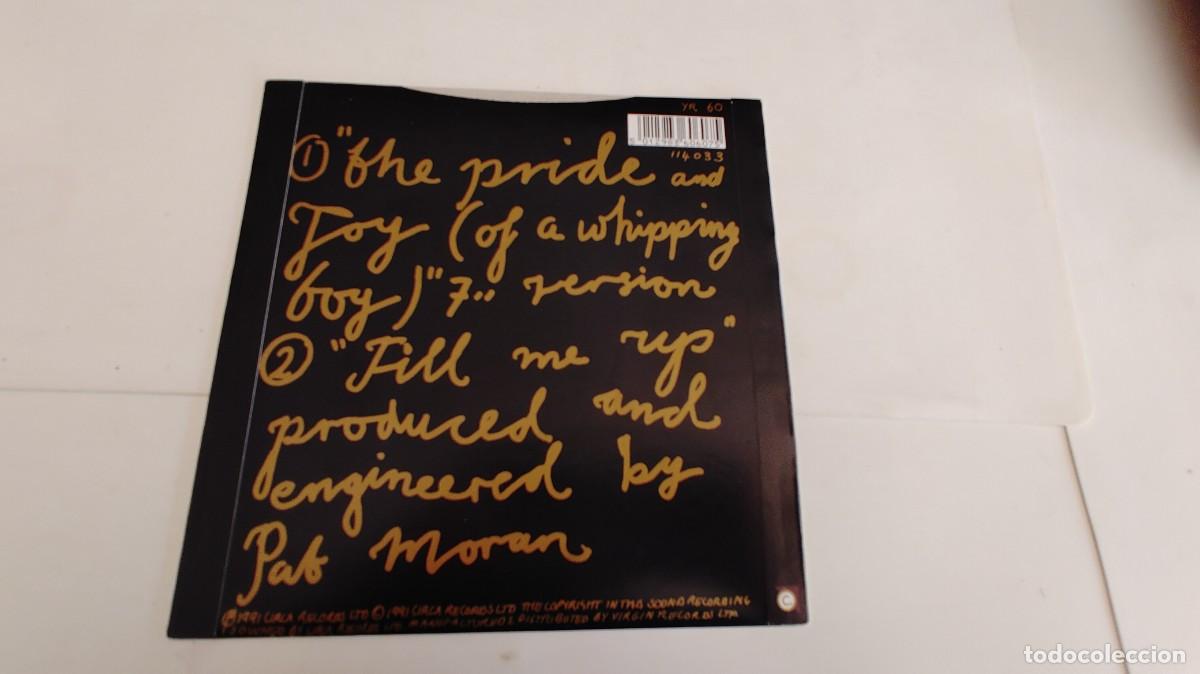 YR 60
114033
① "the pride and
Joy (of a whipping
boy)" 7" version
② "Fill me up"
produced and
engineered by
Pat Moran
℗ 1991 CIRCA RECORDS LTD © 1991 CIRCA RECORDS LTD THE COPYRIGHT IN THIS SOUND RECORDING
IS OWNED BY CIRCA RECORDS LTD. MANUFACTURED & DISTRIBUTED BY VIRGIN RECORDS LTD.
C
todocoleccion